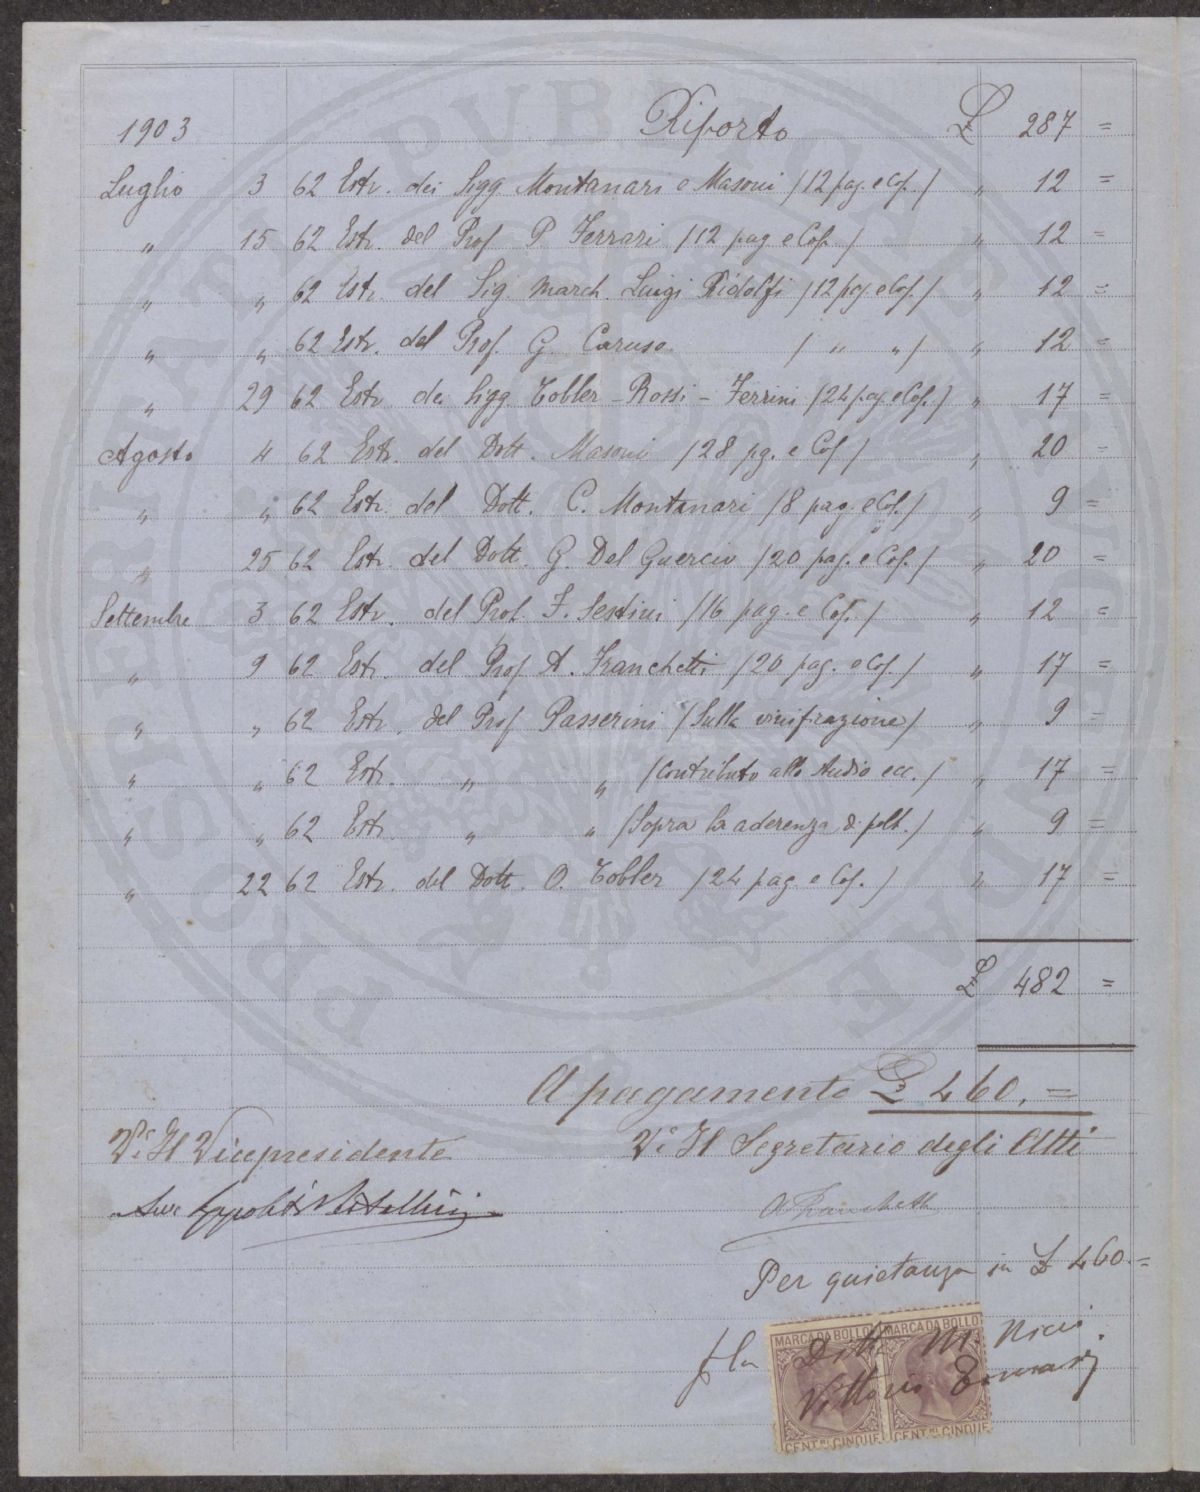 1903 Riporto £ 287 =
Luglio 3 62 Estr. dei Sigg. Montanari e Masoni /12 pag. e Cop./ " 12 =
" 15 62 Estr. del Prof. P. Ferrari /12 pag e Cop./ " 12 =
" " 62 Estr. del Sig. march. Luigi Ridolfi /12 pag. e Cop./ " 12 =
" " 62 Estr. del Prof. G. Caruso / " " / " 12 =
" 29 62 Estr. dei Sigg. Tobler - Rossi - Ferrini /24 pag. e Cop./ " 17 =
Agosto 4 62 Estr. del Dott. Masoni /28 pg. e Cop/ " 20 =
" " 62 Estr. del Dott. C. Montanari /8 pag. e Cop./ " 9 =
" 25 62 Estr. del Dott. G. Del Guercio /20 pag. e Cop./ " 20 =
Settembre 3 62 Estr. del Prof. F. Sestini /16 pag. e Cop./ " 12 =
" 9 62 Estr. del Prof A. Franchetti /20 pag. e Cop./ " 17 =
" " 62 Estr. del Prof Passerini /Sulla vinifrazione/ " 9 =
" " 62 Estr. " " /Contributo allo studio ecc./ " 17 =
" " 62 Estr. " " /Sopra la aderenza d. polt./ " 9 =
" 22 62 Estr. del Dott. O. Tobler /24 pag. e Cop./ " 17 =
£ 482 =
A pagamento £ 460. =
V° Il Vicepresidente V° Il Segretario degli Atti
A Franchetti
Per quietanza in £ 460. =
p la Ditta M. Ricci
Vittorio
MARCA DA BOLLO MARCA DA BOLLO
CENT.MI CINQUE CENT.MI CINQUE
PROSPERITATI PUBLICAE AUGENDAE